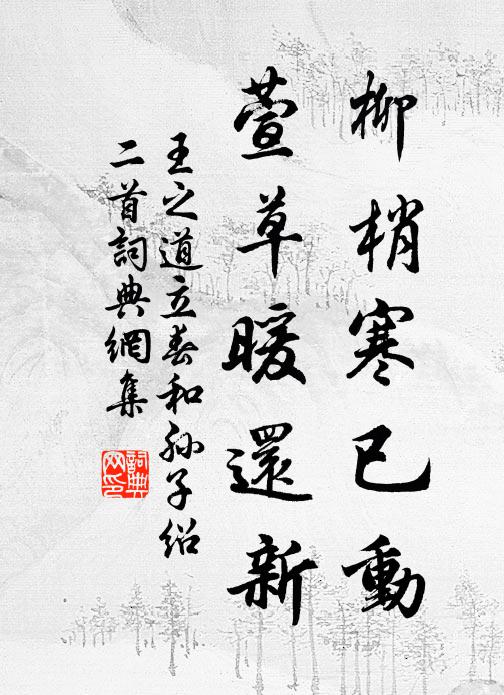 柳梢寒已動
萱草暖還新
王之道立春和孙子绍
二首詞典網集
詞典网印